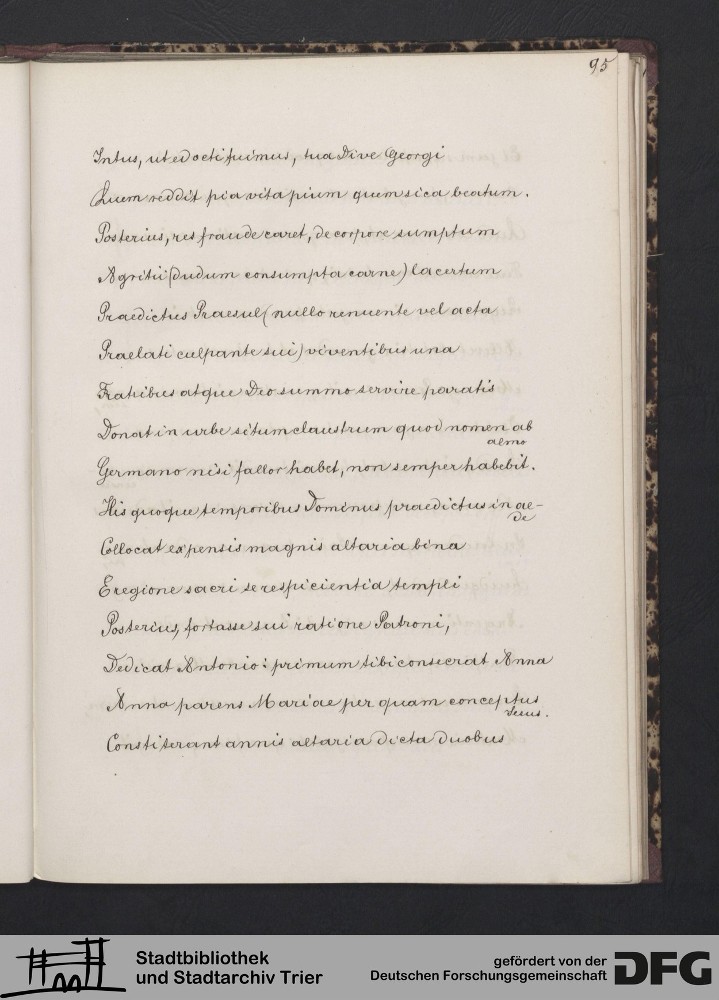 95
Intus, ut edocti fuimus, tua Dive Georgi
Quem reddit pia vita pium quem sica beatum.
Posterius, res fraude caret, de corpore sumptum
Agritii (dudum consumpta carne) lacertum
Praedictus Praesul (nullo renuente vel acta
Praelati culpante sui) viventibus una
Fratribus atque Deo summo servire paratis
Donat in urbe situm claustrum quod nomen ab
almo
Germano nisi fallor habet, non semper habebit.
His quoque temporibus Dominus praedictus in ae-
de
Collocat expensis magnis altaria bina
E regione sacri se respicientia templi
Posterius, fortasse sui ratione Patroni,
Dedicat Antonio: primum tibi consecrat Anna
Anna parens Mariae per quam conceptus
Jesus.
Constiterant annis altaria dicta duobus
Stadtbibliothek
und Stadtarchiv Trier
gefördert von der
Deutschen Forschungsgemeinschaft
DFG